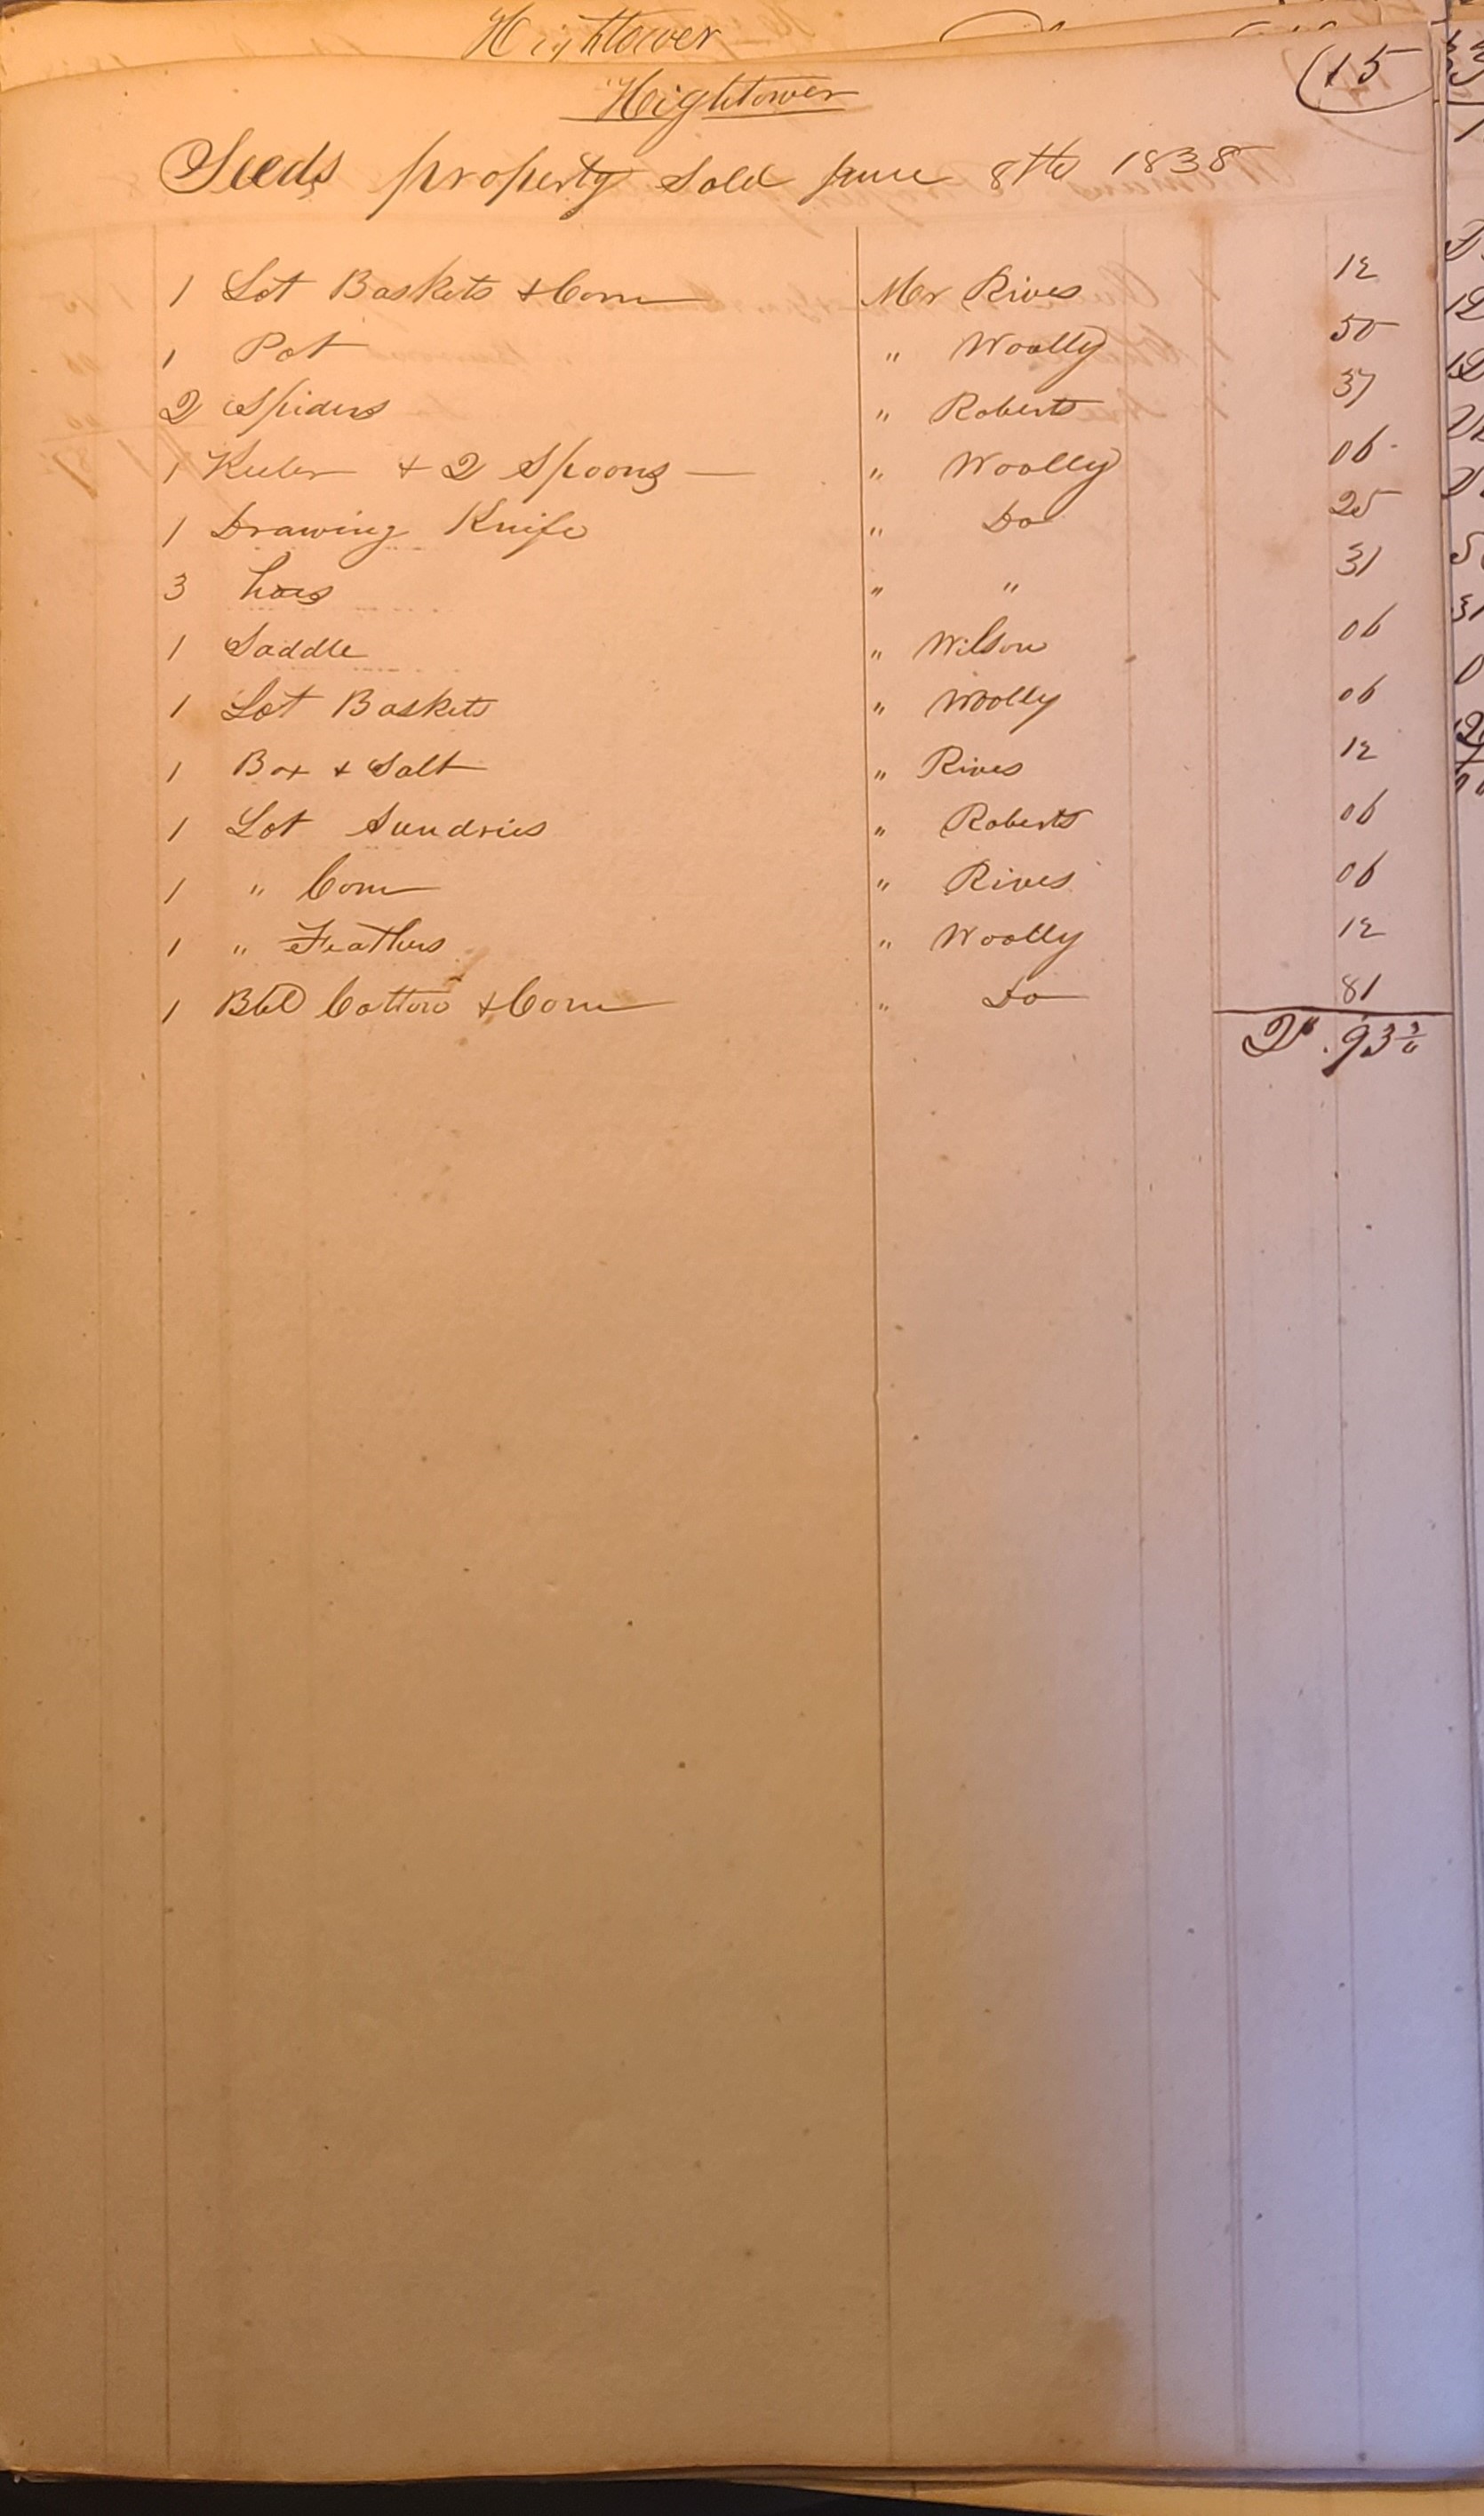 Hightower
Hightower
15
Seeds property Sold June 8th 1838
1 Lot Baskets & Corn Mr Rives 12
1 Pot " Woolly 50
2 Spiders " Roberts 37
1 Keeler & 2 Spoons — " Woolly 06
1 Drawing Knife " Do 25
3 hoes " " 31
1 Saddle " Wilson 06
1 Lot Baskets " Woolly 06
1 Box & Salt " Rives 12
1 Lot Sundries " Roberts 06
1 " Corn " Rives 06
1 " Feathers " Woolly 12
1 Bbl Cotton & Corn " Do 81
2".93